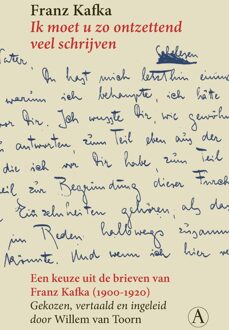 Franz Kafka
Ik moet u zo ontzettend
veel schrijven
Schelesen
Vater,
Du hast mich letzthin einma
warum ich behaupte, ich hätte
vor Dir. Ich wusste Dir, wie gewöh
antworten, zum Teil eben aus der
die ich vor Dir habe zum Teil
eil zur Begründung dieser Furch
Einzelnheiten gehören, als das
im Reden halbwegs zusamm
könnte. Und wenn ich hier
Een keuze uit de brieven van
Franz Kafka (1900-1920)
Gekozen, vertaald en ingeleid
door Willem van Toorn
A